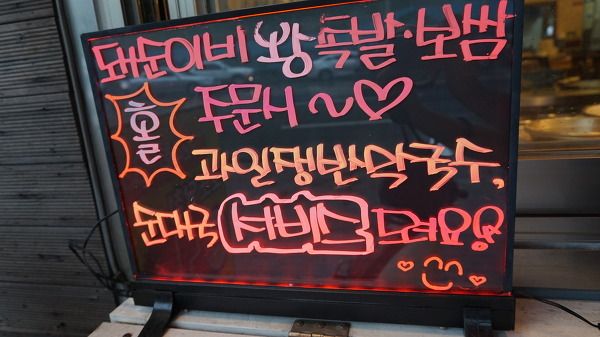 돼순이비 왕 족발·보쌈
주문시 ~♡
홀
과일쟁반막국수,
순대국 서비스 드려요^^